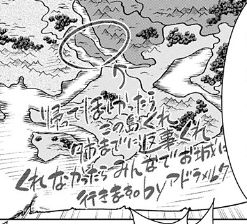 帰ってほしかったら
この島くれ
7時までに返事くれ
くれなかったらみんなでお城に
行きます。byアドラメルク